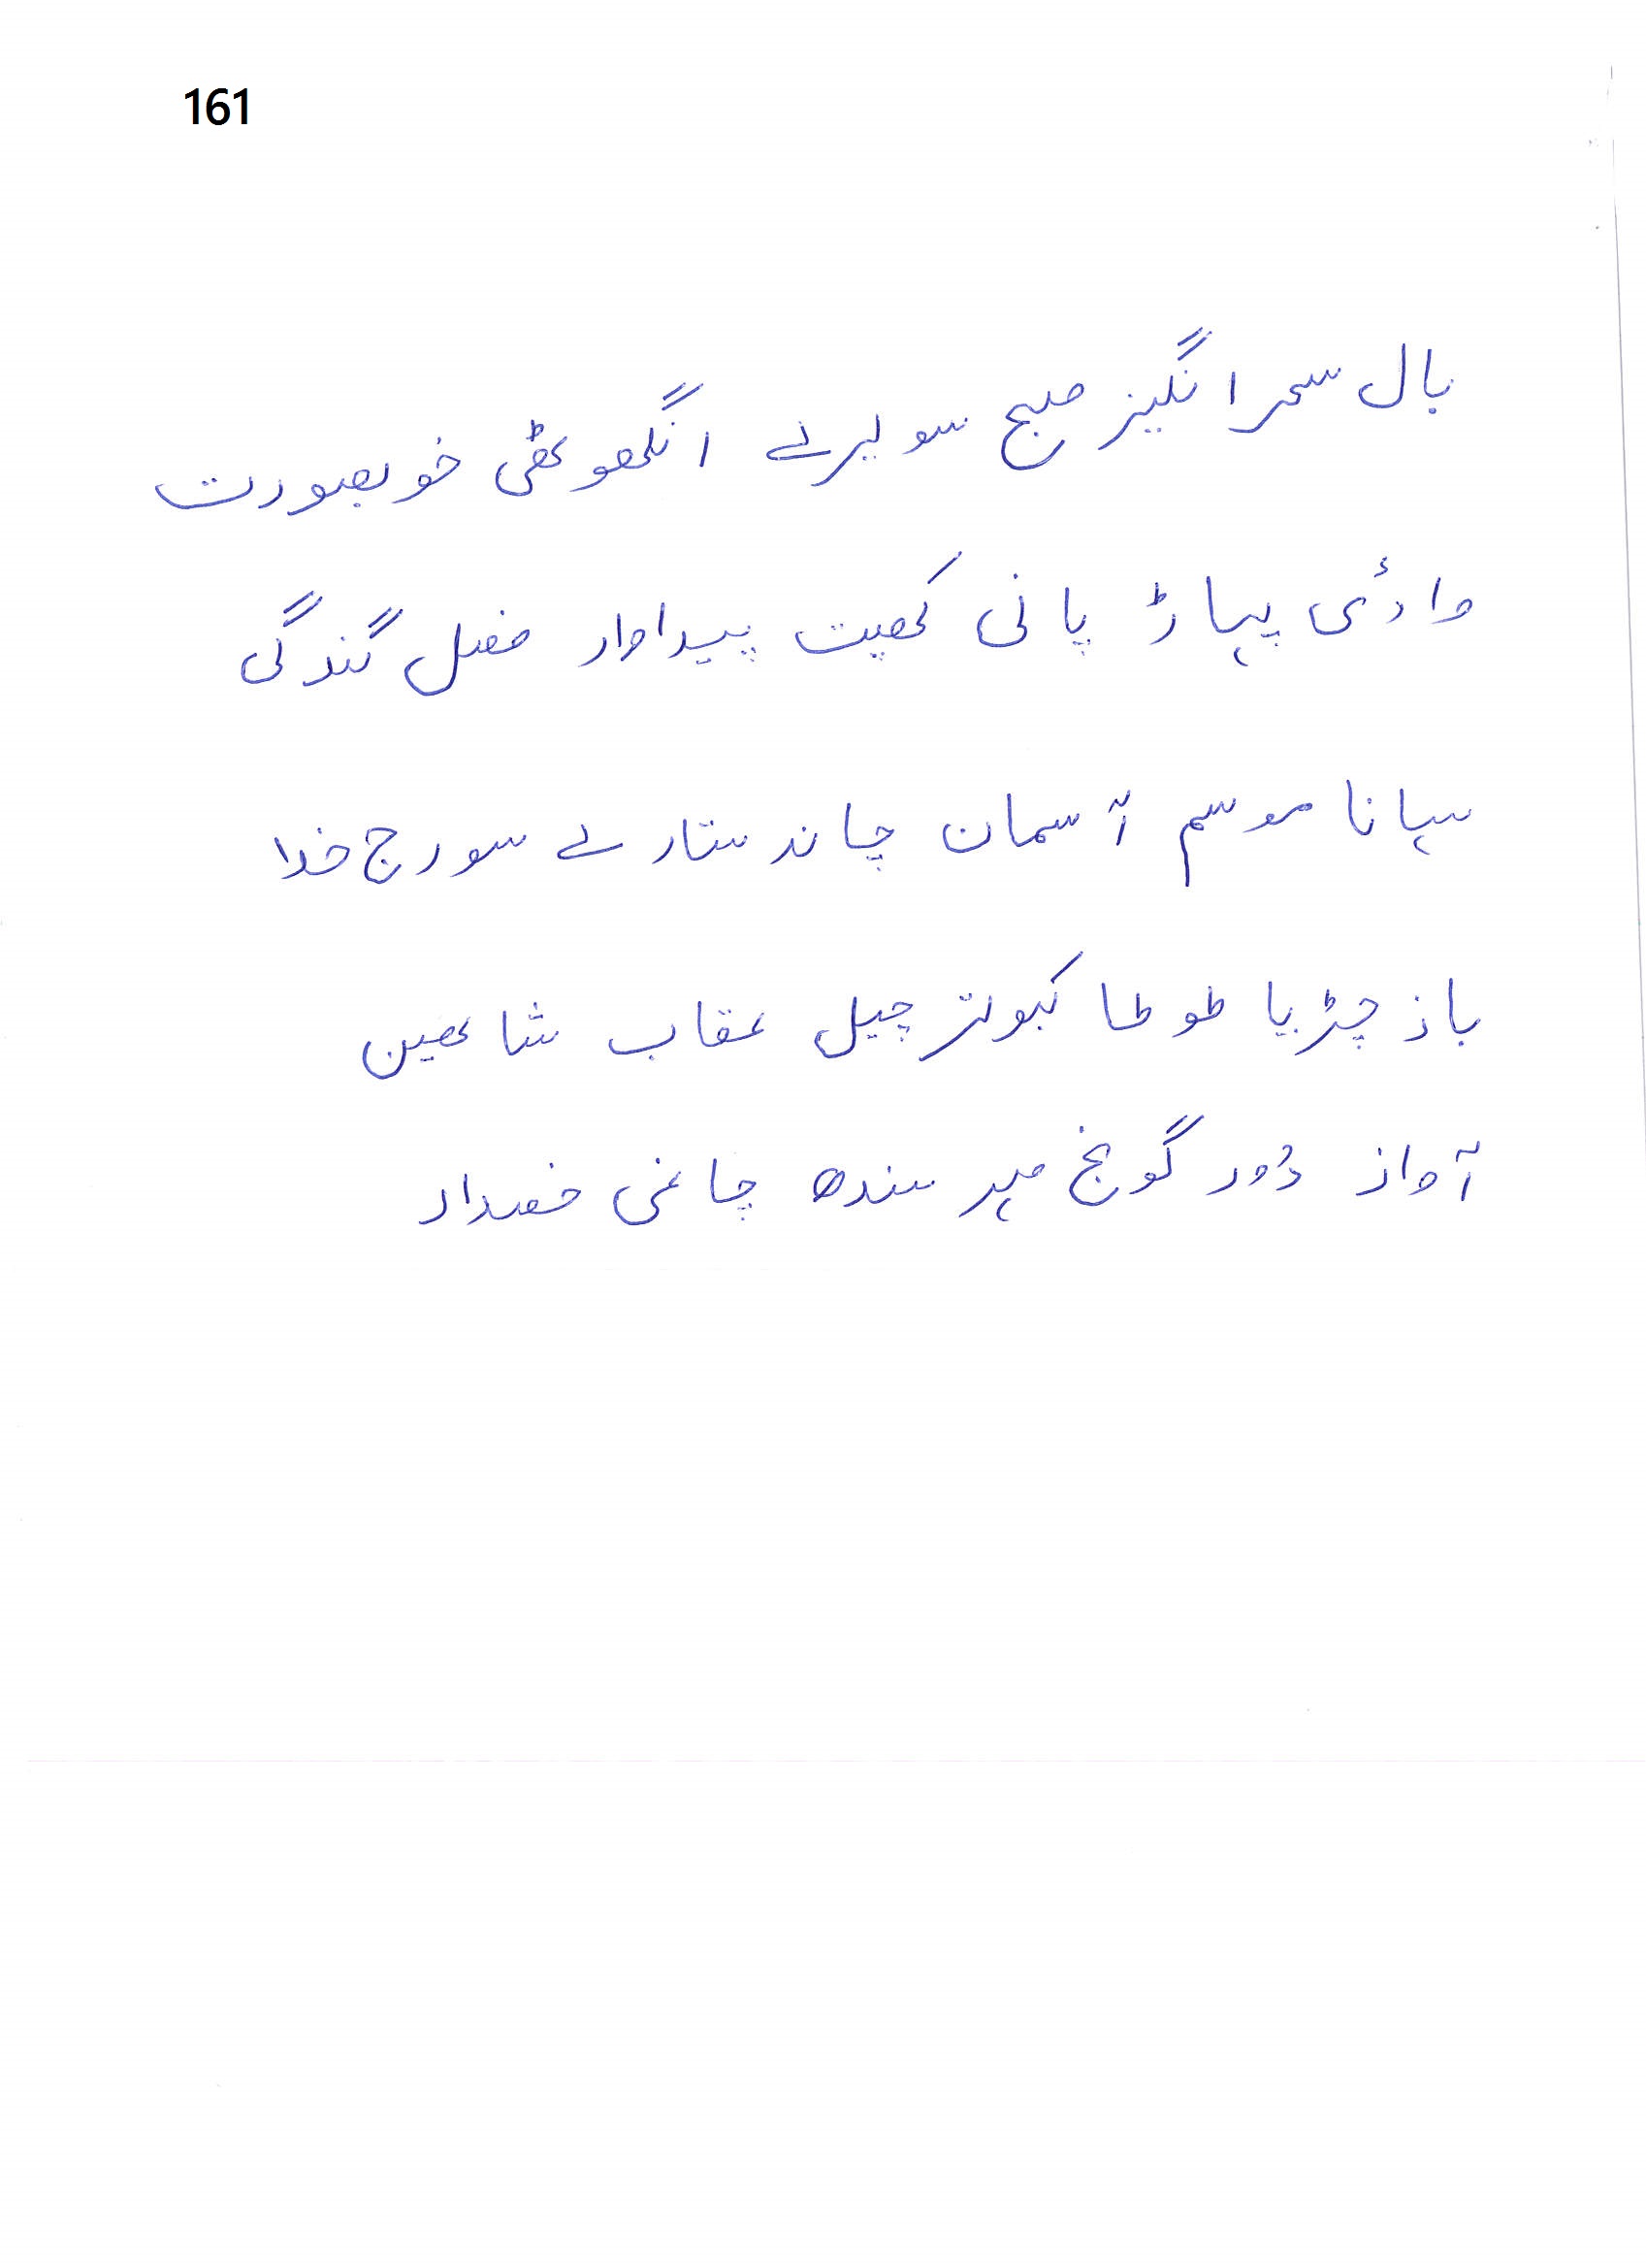 161
بال سحر انگیز صبح سویرے انگھوٹھی خوبصورت
وادئی پہاڑ پانی کھیت پیداوار فصل گندگی
سہانا موسم آسمان چاند ستارے سورج خدا
باز چڑیا طوطا کبوتر چیل عقاب شاھین
آواز دُور گونج مہر سندھ چاغی خضدار